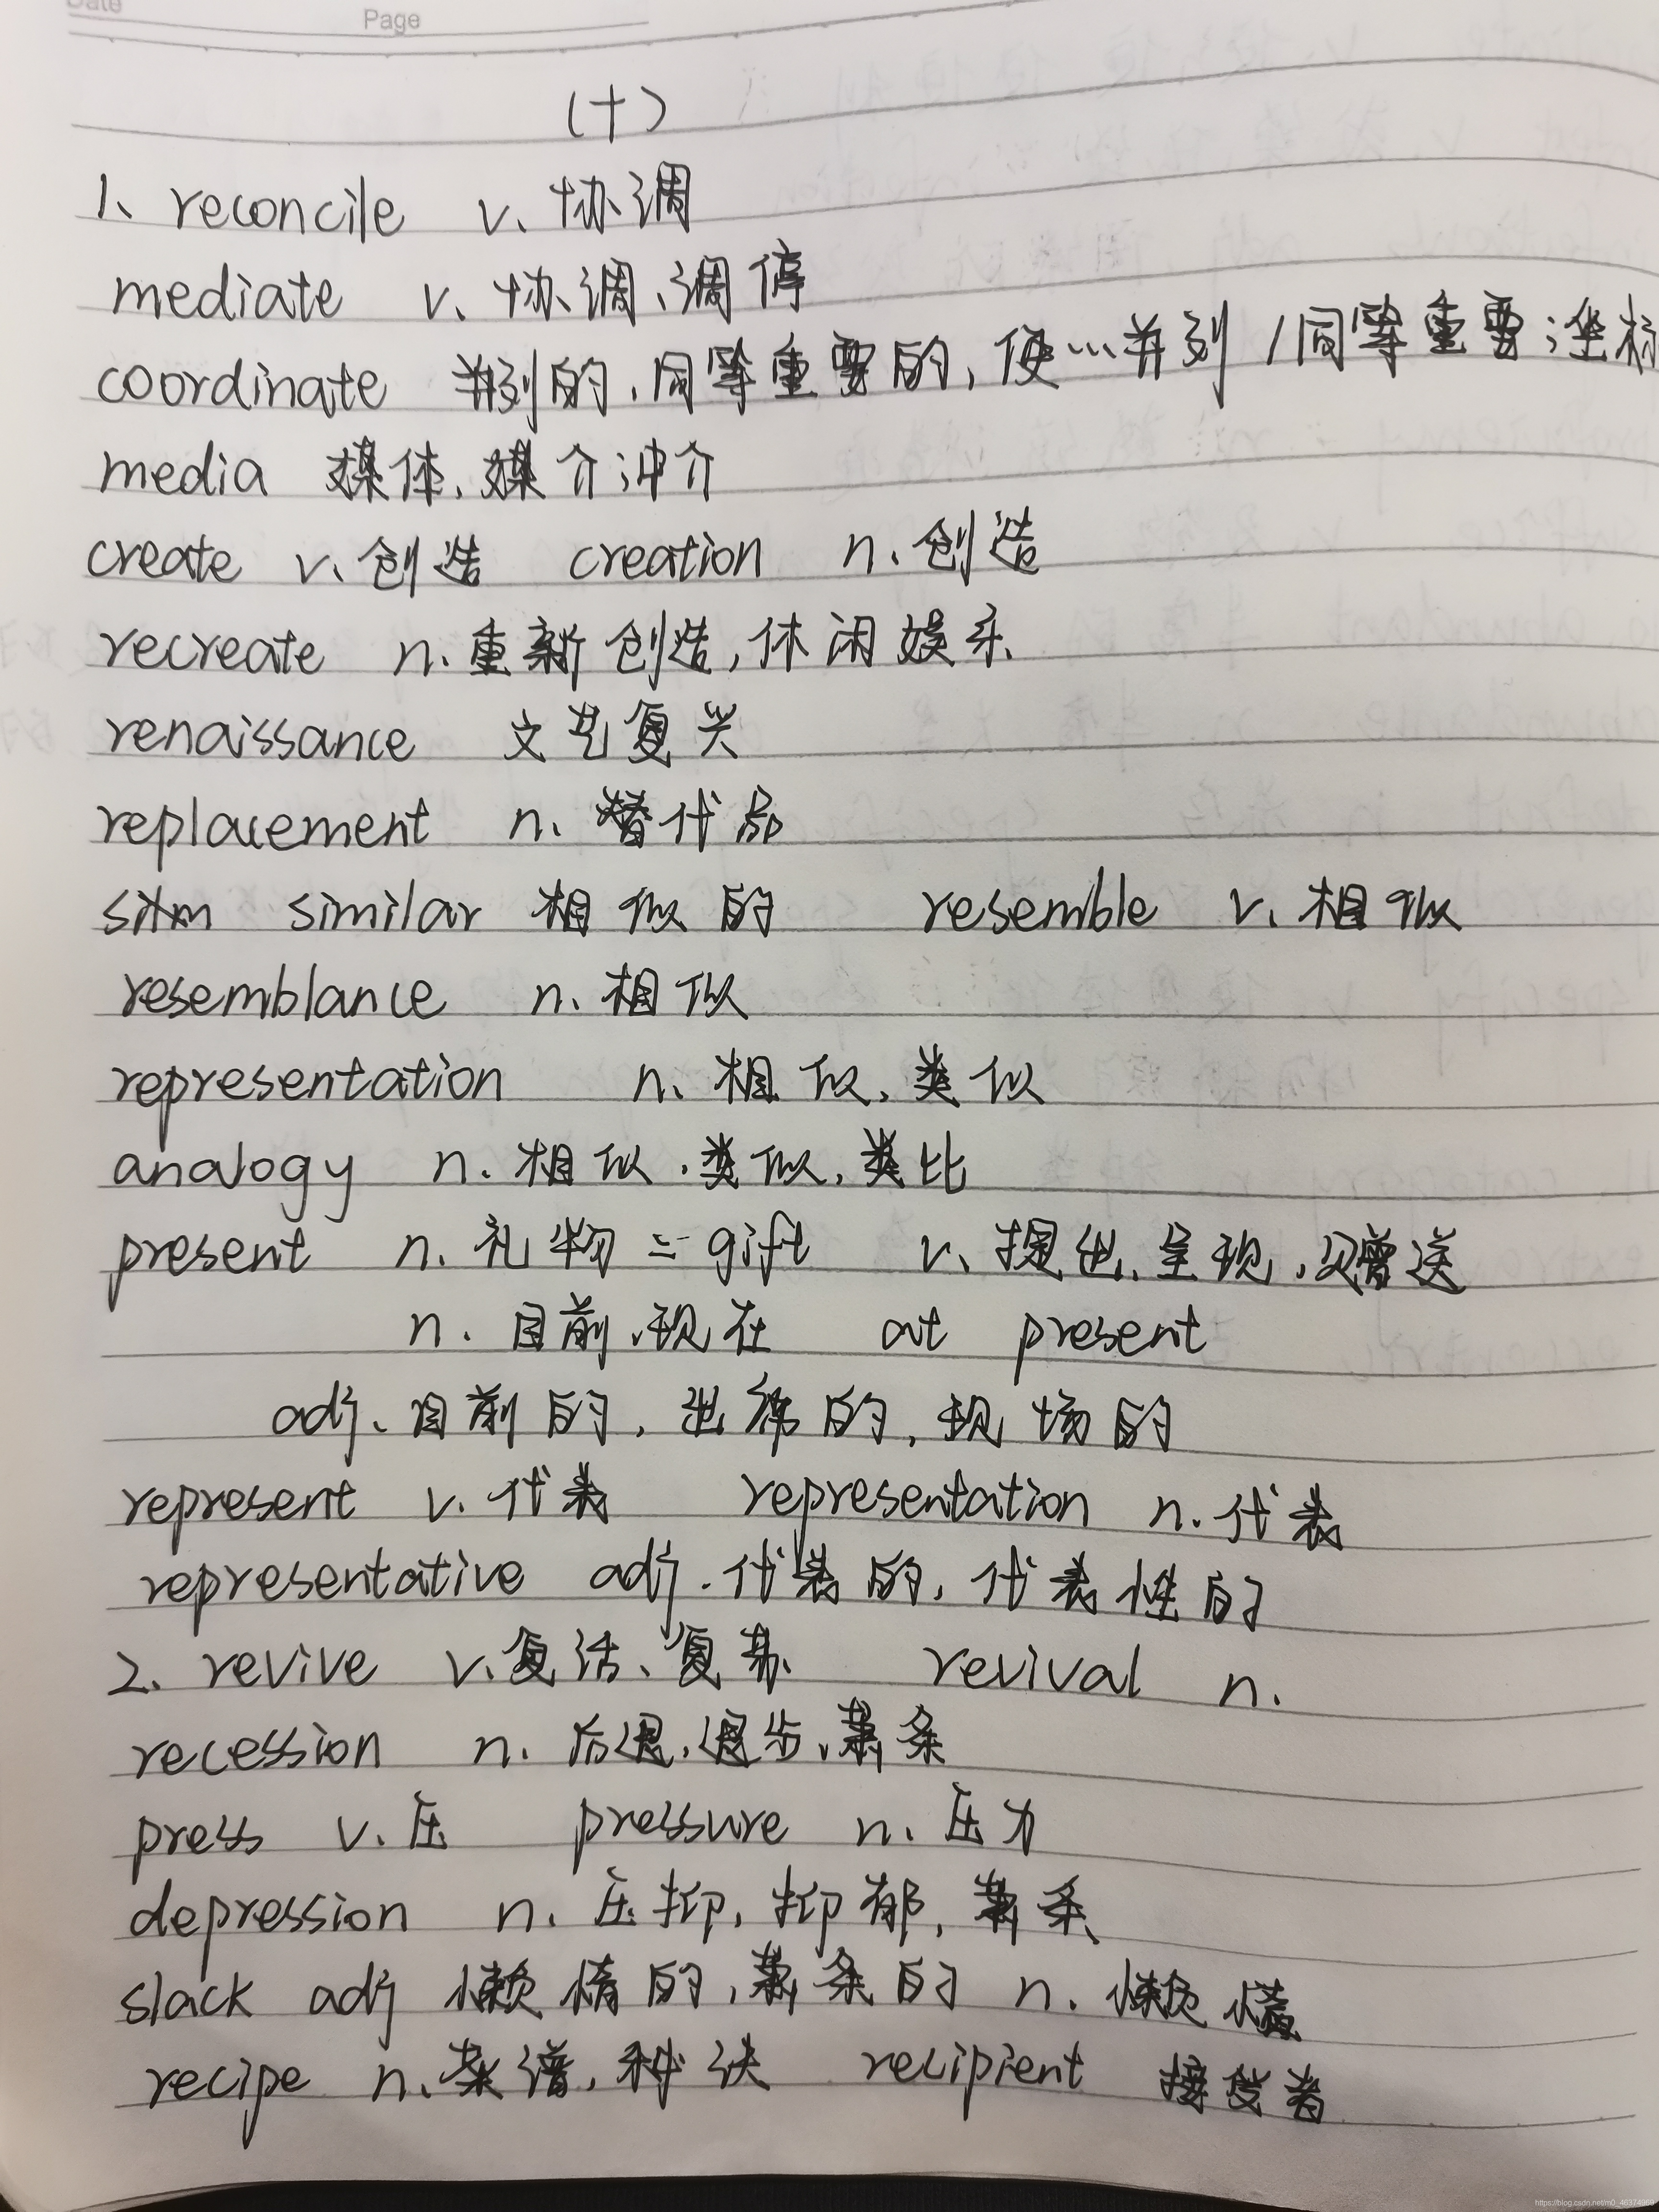 Date
Page
(十)
1、reconcile v、协调
mediate v、协调、调停
coordinate 并列的,同等重要的,使…并列/同等重要;坐标
media 媒体,媒介;中介
create v、创造 creation n.创造
recreate n.重新创造,休闲娱乐
renaissance 文艺复兴
replacement n、替代品
similar 相似的 resemble v、相似
resemblance n、相似
representation n、相似、类似
analogy n.相似、类似,类比
present n.礼物=gift v、提出、呈现、赠送
n.目前、现在 at present
adj、目前的,出席的,现场的
represent v.代表 representation n.代表
representative adj.代表的,代表性的
2、revive v、复活、复苏 revival n.
recession n.后退,退步、萧条
press v.压 pressure n.压力
depression n.压抑,抑郁,萧条
slack adj 懒惰的,萧条的 n.懒惰
recipe n、菜谱,秘诀 recipient 接受者